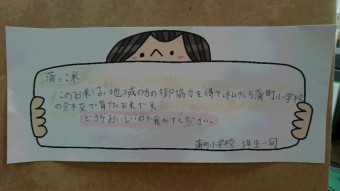 蒲っこ米
このお米は、地域の方の御協力を得て、私たち蒲町小学校
の全校で育てたお米です。
とてもおいしいので食べてください。
蒲町小学校 5年生一同